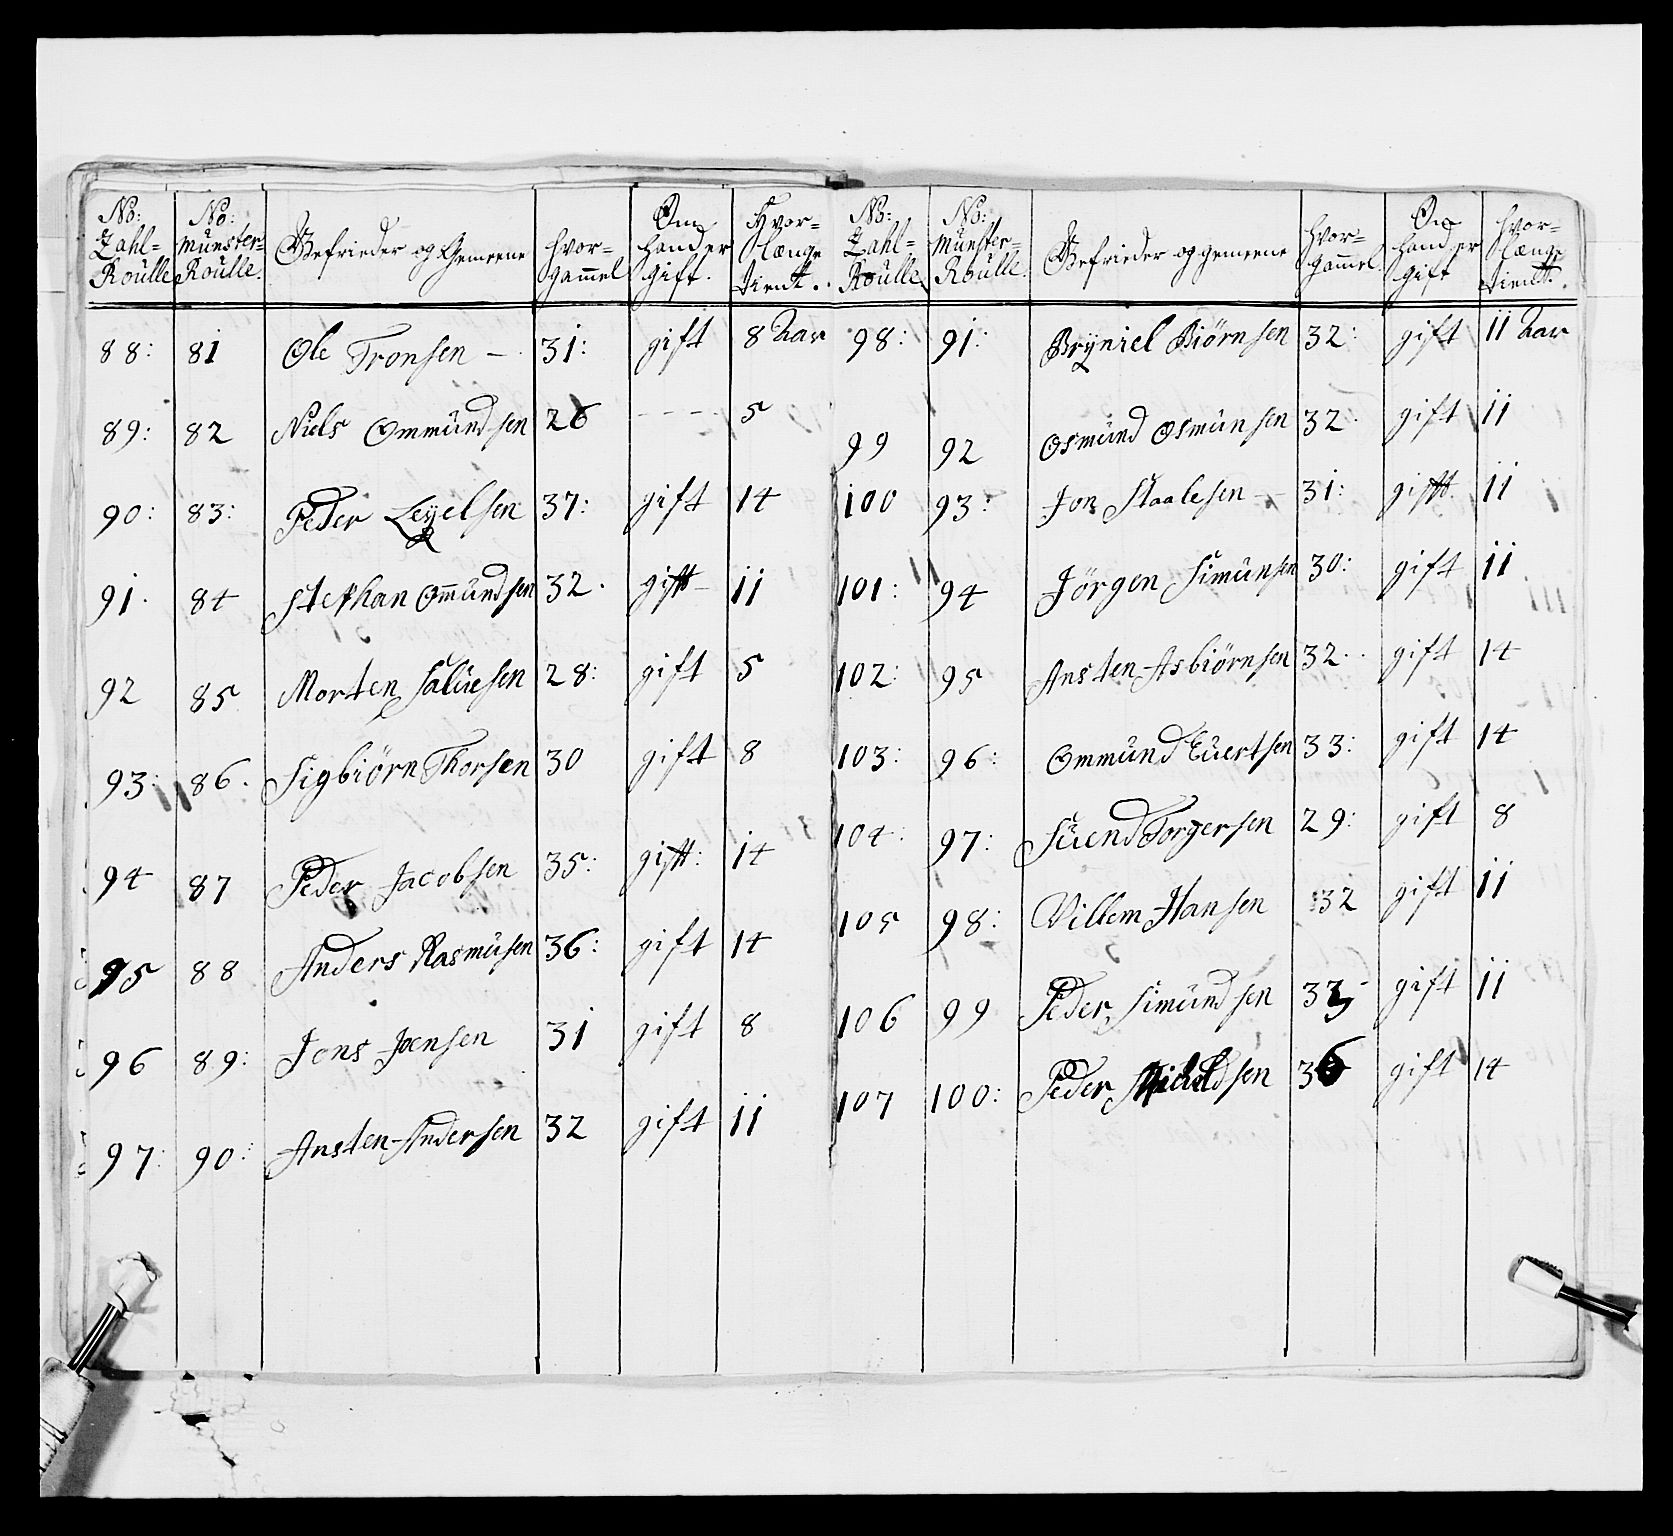 No: Zahl= Roulle | No: Munster= Roulle. | Befrieder og Gemeene | Hvor= Gammel | Om hand er Gift. | Hvor= længe Tient.
88: 81 Ole Tronsen — 31: gift 8 Aar
89: 82 Niels Ommund sen 26 - - - 5
90: 83: Peder Leyelsen 37: gift 14
91. 84 Stephan Omundsen 32. gift 11
92 85 Morten Saluesen 28: gift 5
93: 86. Sigbiörn Thorsen 30 gift 8
94 87 Peder Jacobsen 35: gift: 14
95 88 Anders Rasmusen 36: gift 14
96 89: Jons Joensen 31 gift 8
97: 90: Ansten Andersen 32 gift 11
No: Zahl= Roulle | No: Munster= Roulle. | Befrieder og gemeene | Hvor= Gammel. | Om hand er Gift | Hvor= længe Tient.
98: 91: Bryniel Biörnsen 32: gift 11 Aar
99 92 Osmund Osmunsen 32. gift 11
100 93: Jon Staalesen — 31: gift 11
101: 94 Jörgen Simunsen 30: gift 11
102: 95 Ansten Asbiörnsen 32.. gift 14
103: 96: Ommund Euertsen 33: gift 14
104: 97: Suend Torgersen 29: gift 8
105 98: Villem Hansen 32 gift 11
106 99 Peder Simund sen 33 gift 11
107 100: Peder 36 gift 14